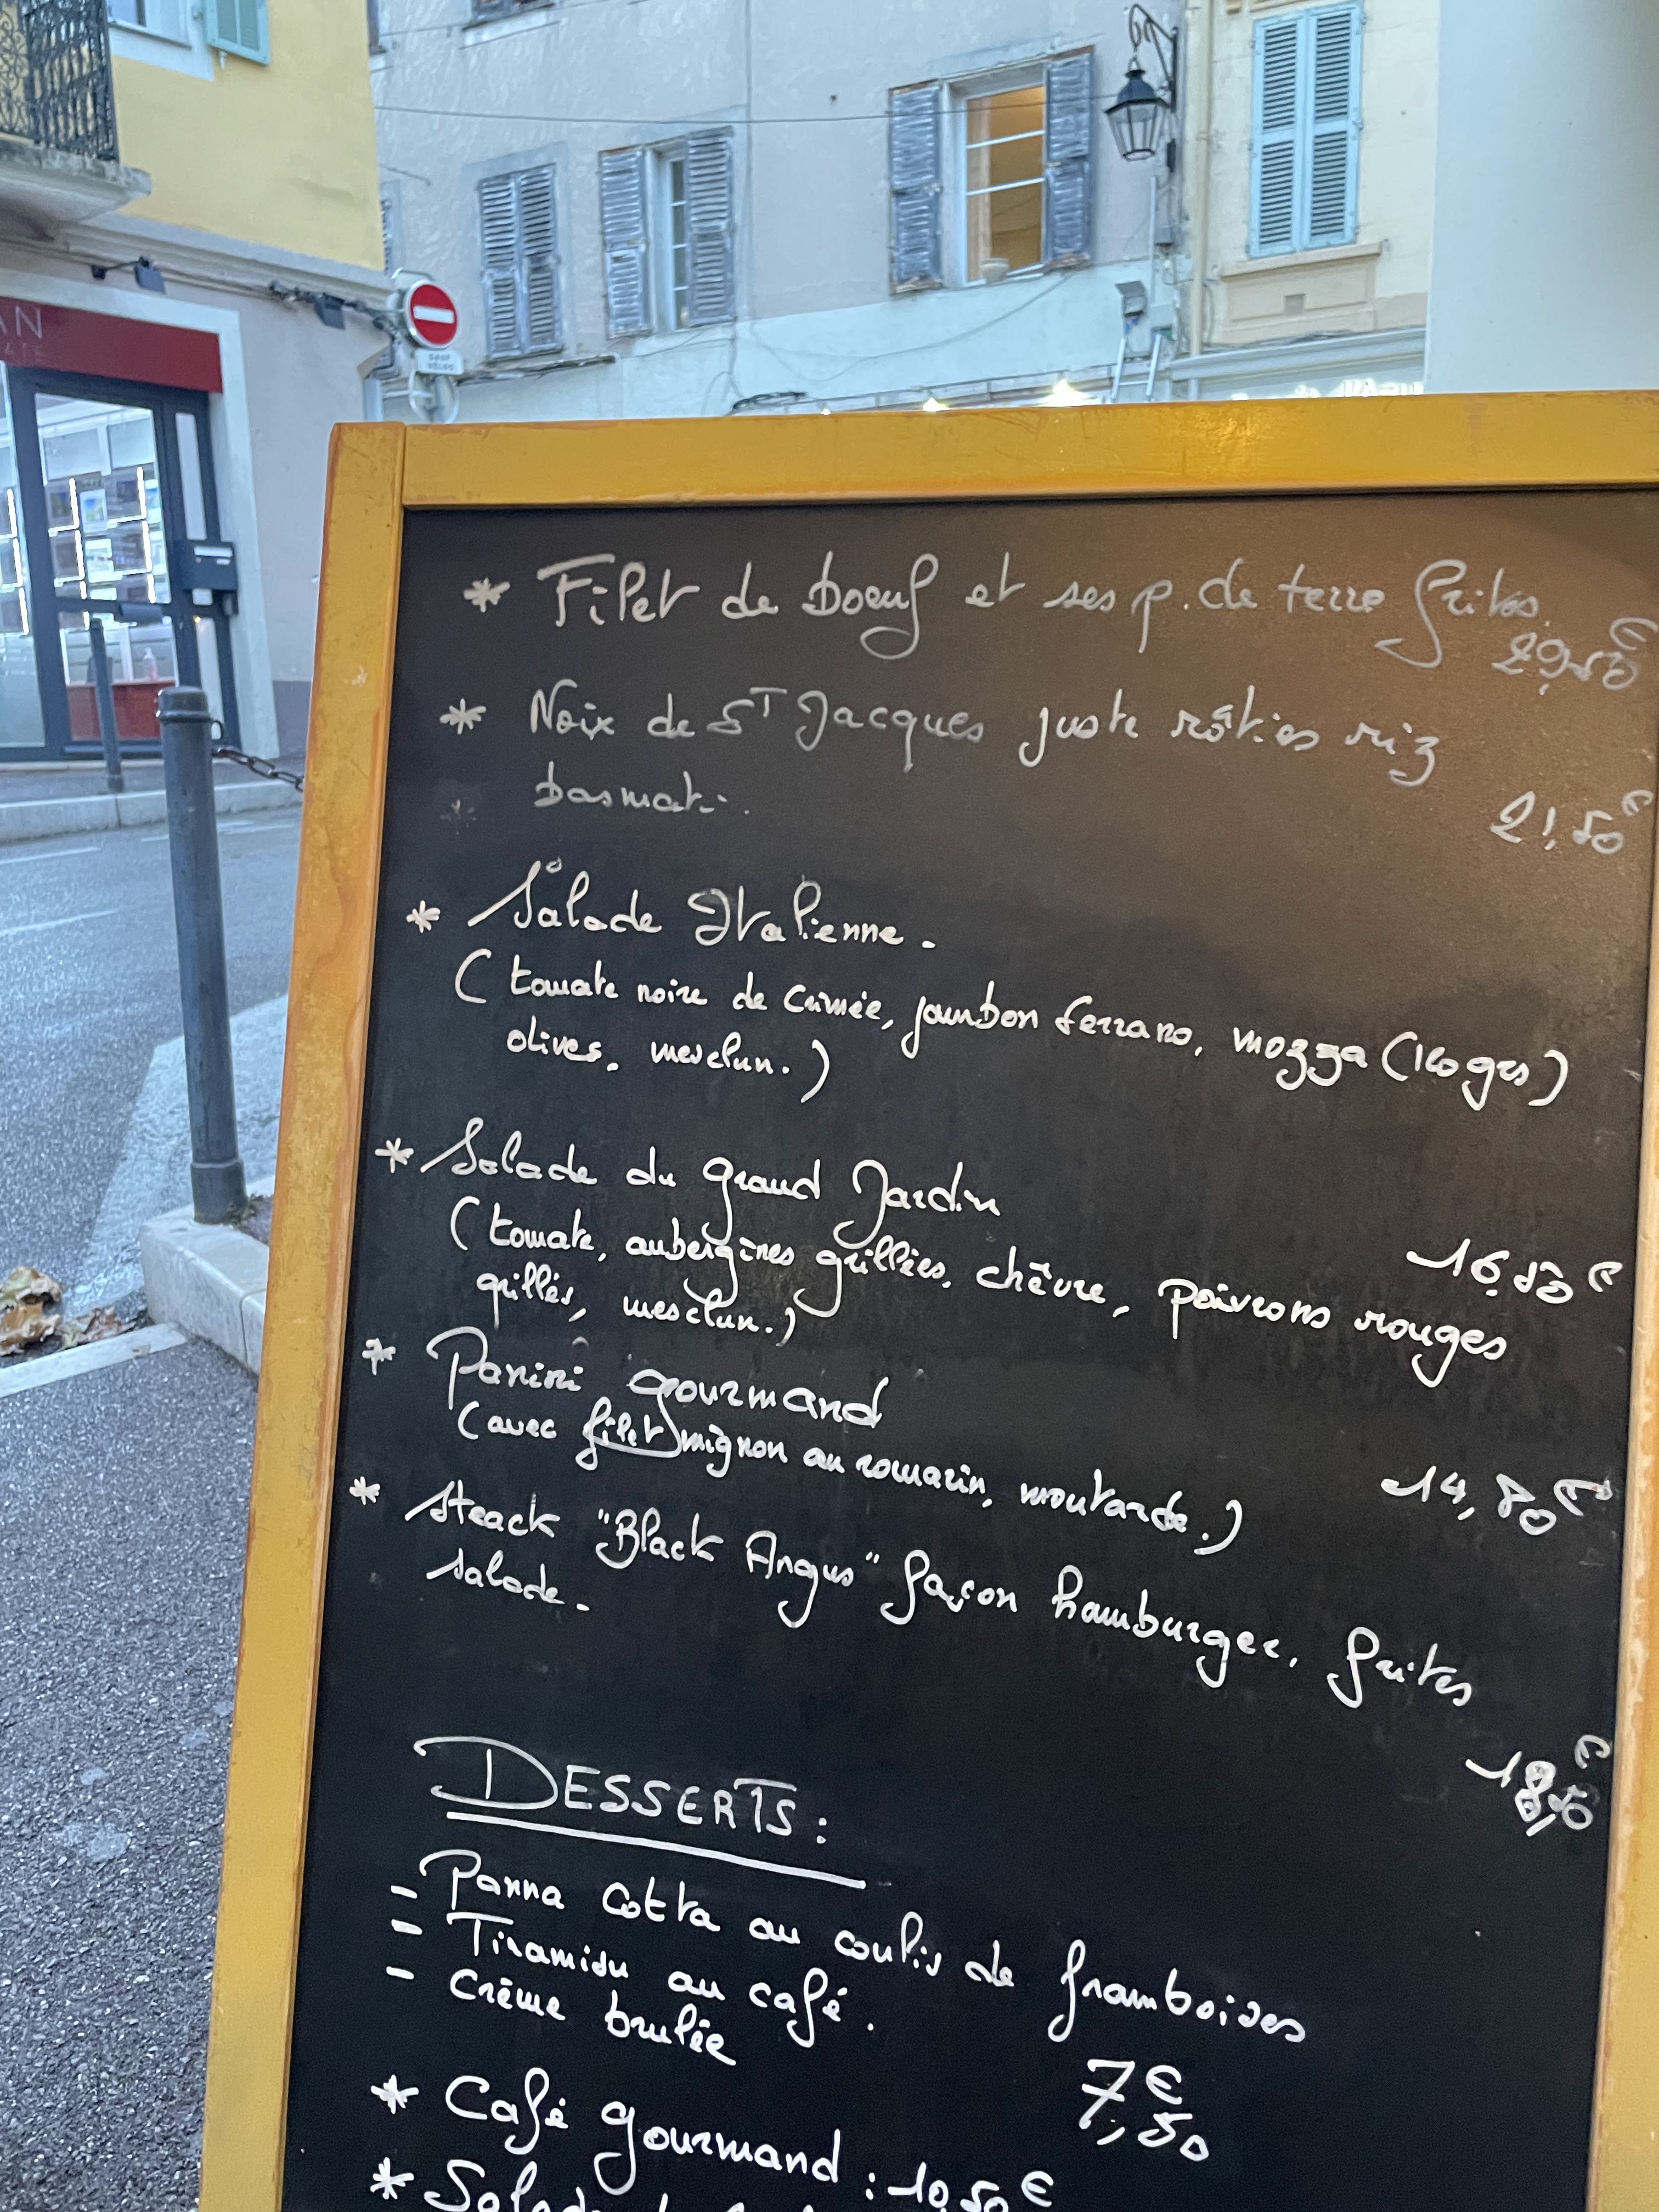 AN
SAUF
VÉLOS
* Filet de boeuf et ses p. de terre frites.
29,50€
* Noix de ST Jacques juste rôties riz
basmati.
21,50€
* Salade Italienne.
(tomate noire de Crimée, jambon serrano, mozza
olives, mesclun.)
* Salade du grand Jardin
16,50€
(tomate, aubergines grillées, chèvre, poivrons rouges
grillés, mesclun.)
* Panini gourmand
(avec filet mignon au romarin, moutarde.)
14,80€
* Steack "Black Angus" façon hamburger, frites
salade.
€
DESSERTS :
- Panna Cotta au coulis de framboises
- Tiramisu au café.
- Crème brulée
7,50€
* Café gourmand : 10,50€
* Salade